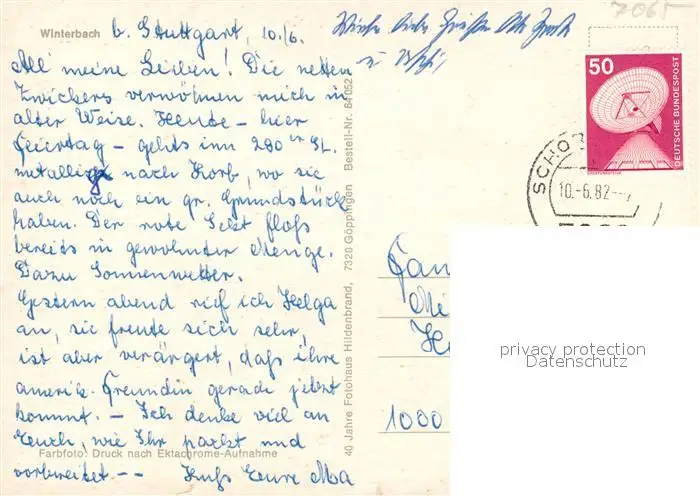 Winterbach b. Stuttgart, 10./6.
All meine Lieben! Die netten
Zwickers verwöhnen mich in
alter Weise. Heute – hier
Feiertag – gehts im 280 er SL.
metallic nach Korb, wo sie
auch noch ein gr. Grundstück
haben. Der rote Sekt floß
bereits in gewohnter Menge.
Dazu Sonnenwetter.
Gestern abend rief ich Helga
an, sie freute sich sehr,
ist aber verärgert, daß ihre
amerik. Freundin gerade jetzt
kommt. – Ich denke viel an
Euch, wie Ihr packt und
vorbereitet --
Kuß Eure Ma
Farbfoto: Druck nach Ektachrome-Aufnahme
40 Jahre Fotohaus Hildenbrand, 7320 Göppingen Bestell-Nr. 64052
Grüße
u
7065
50
DEUTSCHE BUNDESPOST
ERDFUNKSTELLE
SCHO
10.-6.82
Fam
1000
privacy protection
Datenschutz